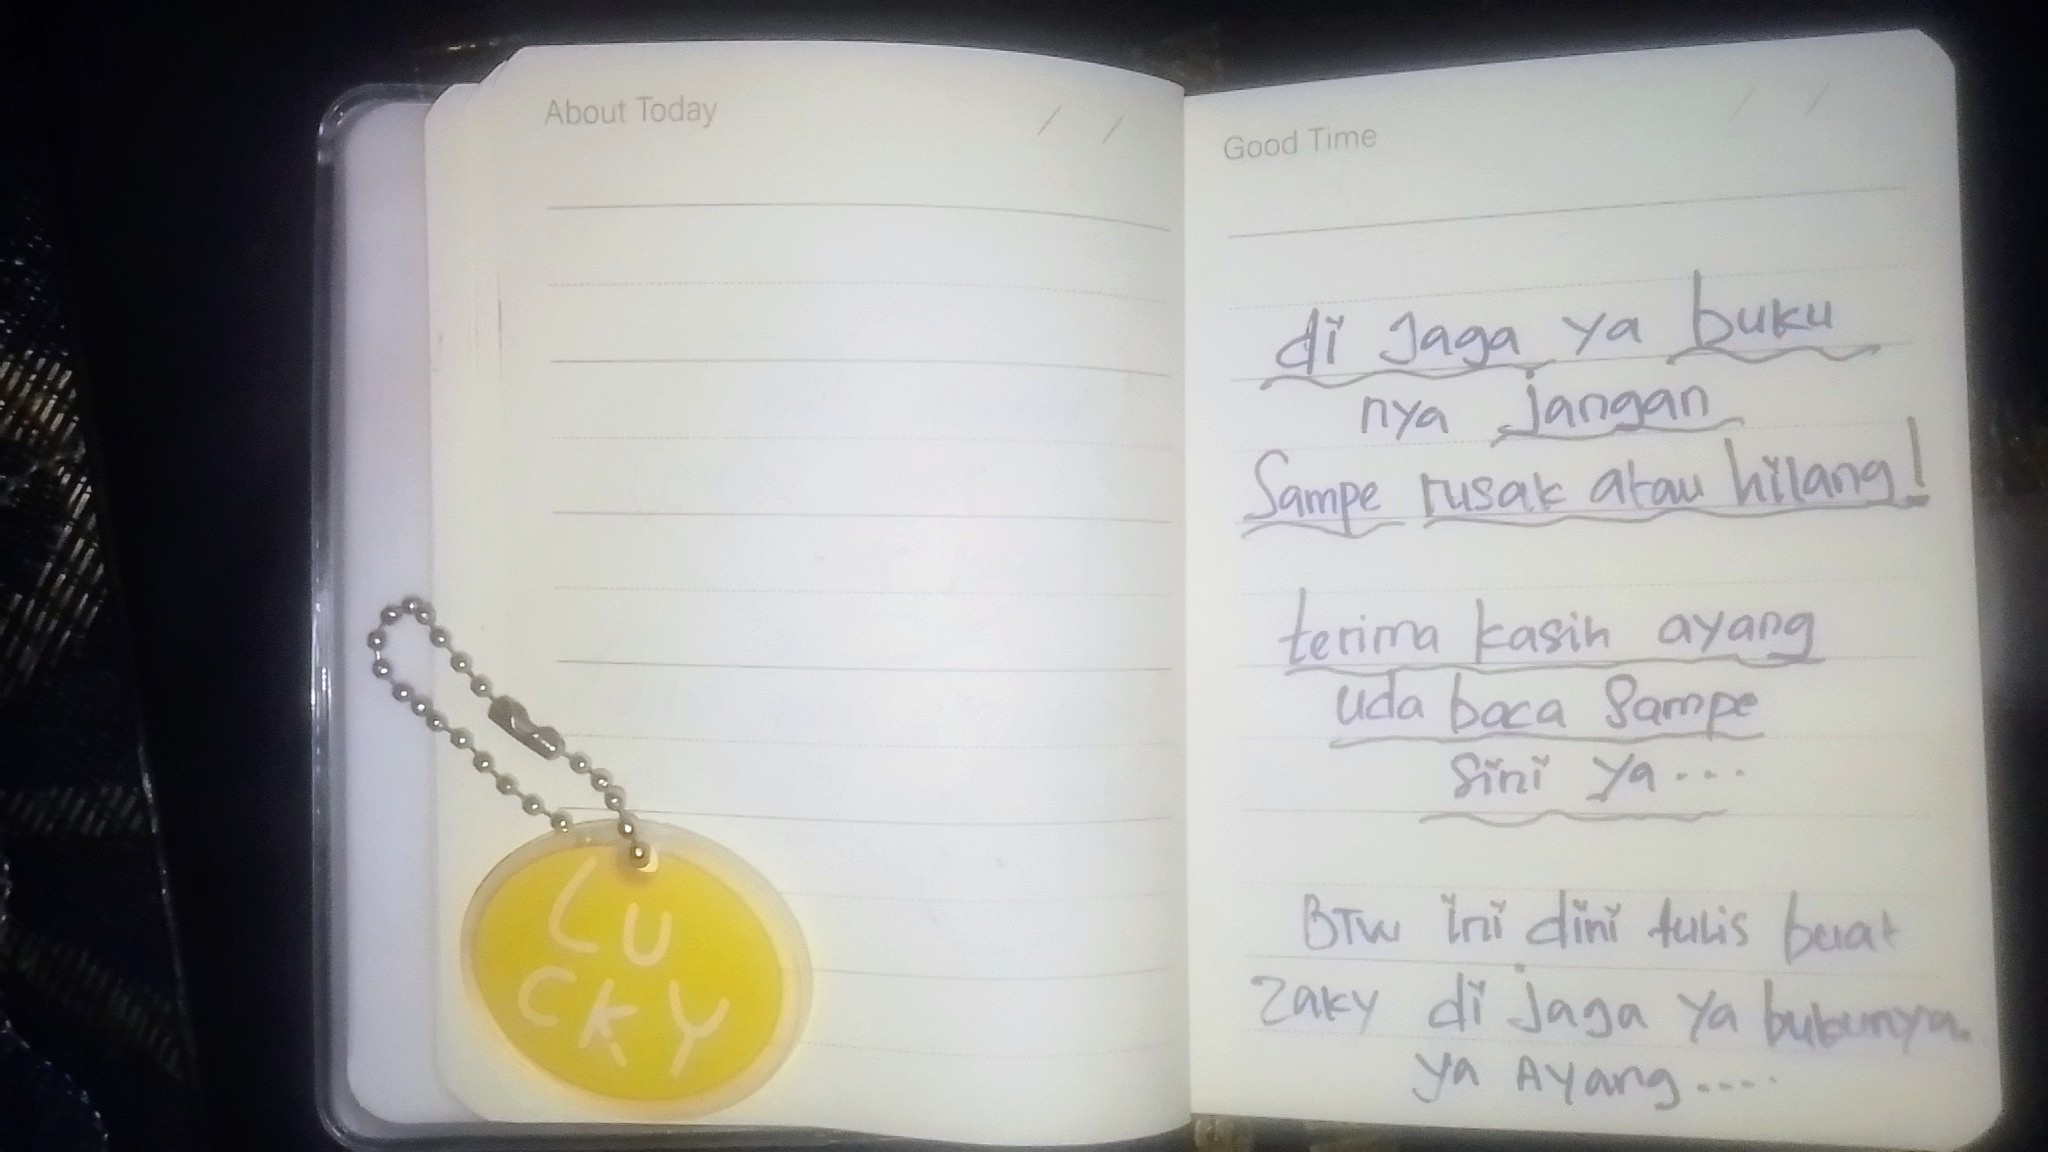 About Today / /
LU
CKY
Good Time / /
di Jaga ya buku
nya jangan
Sampe rusak atau hilang!
terima kasih ayang
uda baca Sampe
Sini ya...
BTW ini dini tulis buat
Zaky di jaga ya bukunya.
ya Ayang....